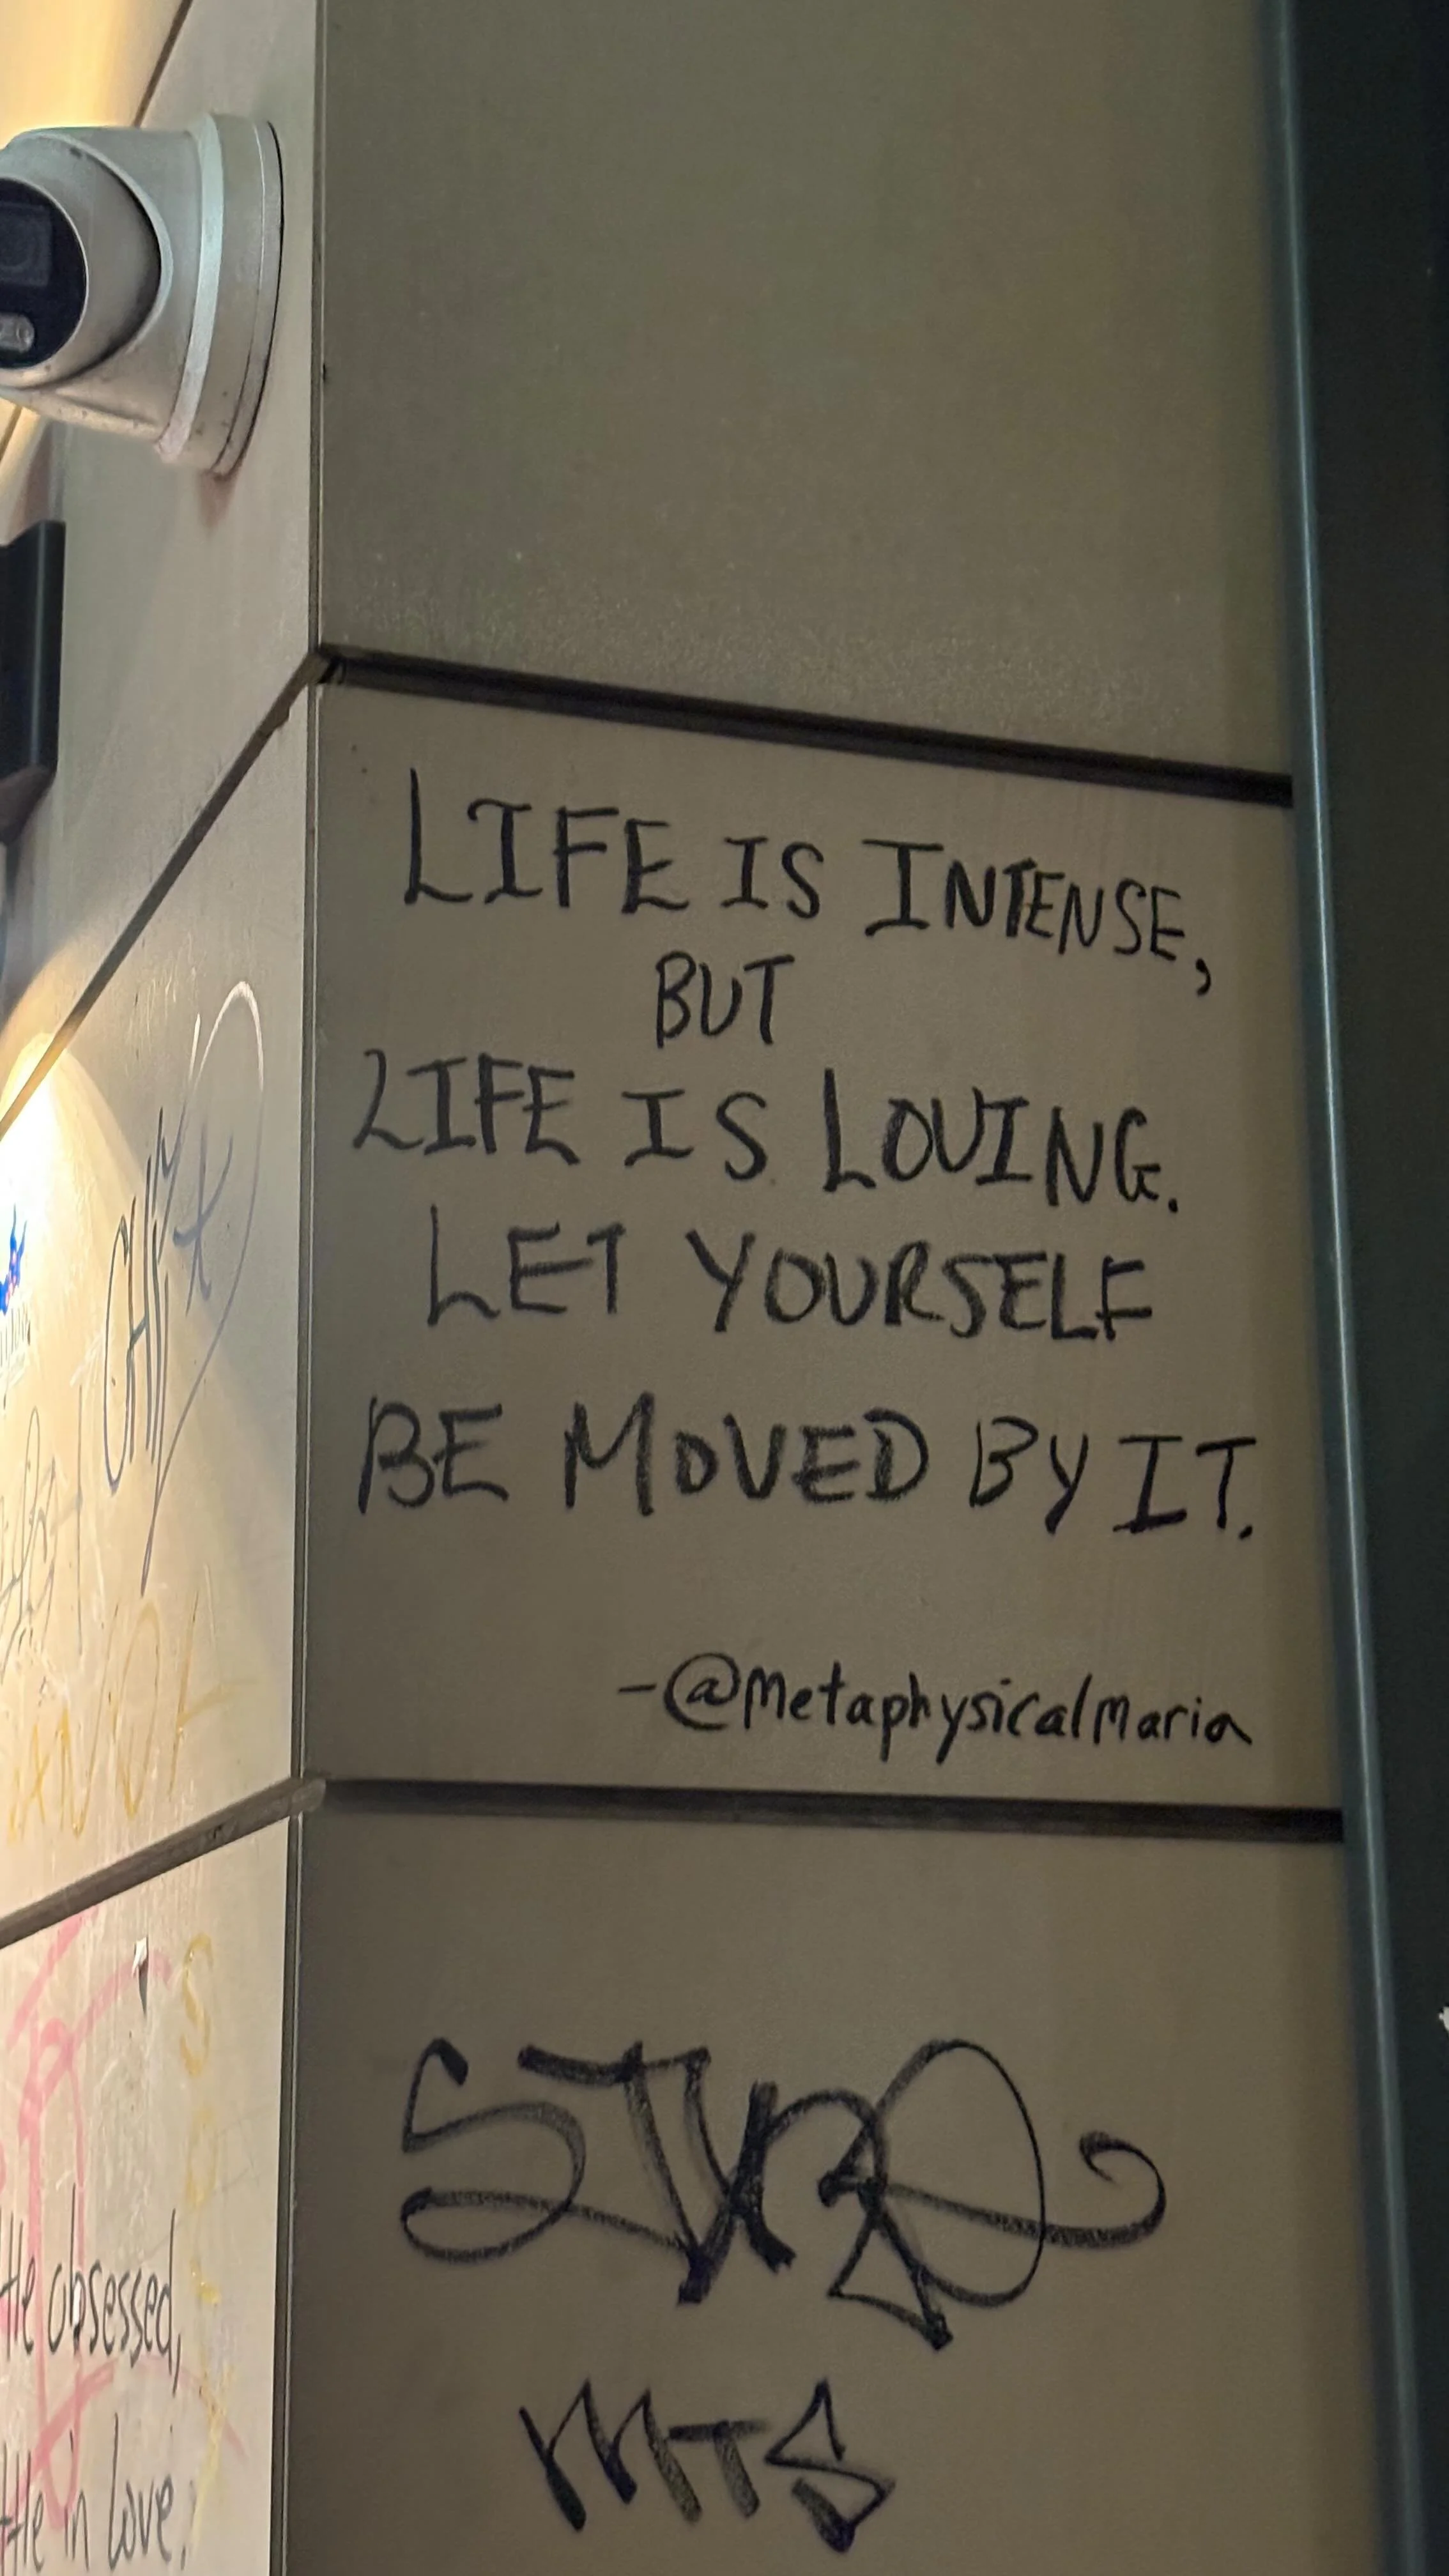 LIFE IS INTENSE,
BUT
LIFE IS LOVING.
LET YOURSELF
BE MOVED BY IT.
-@metaphysicalmaria
MTS
obsessed,
in love.